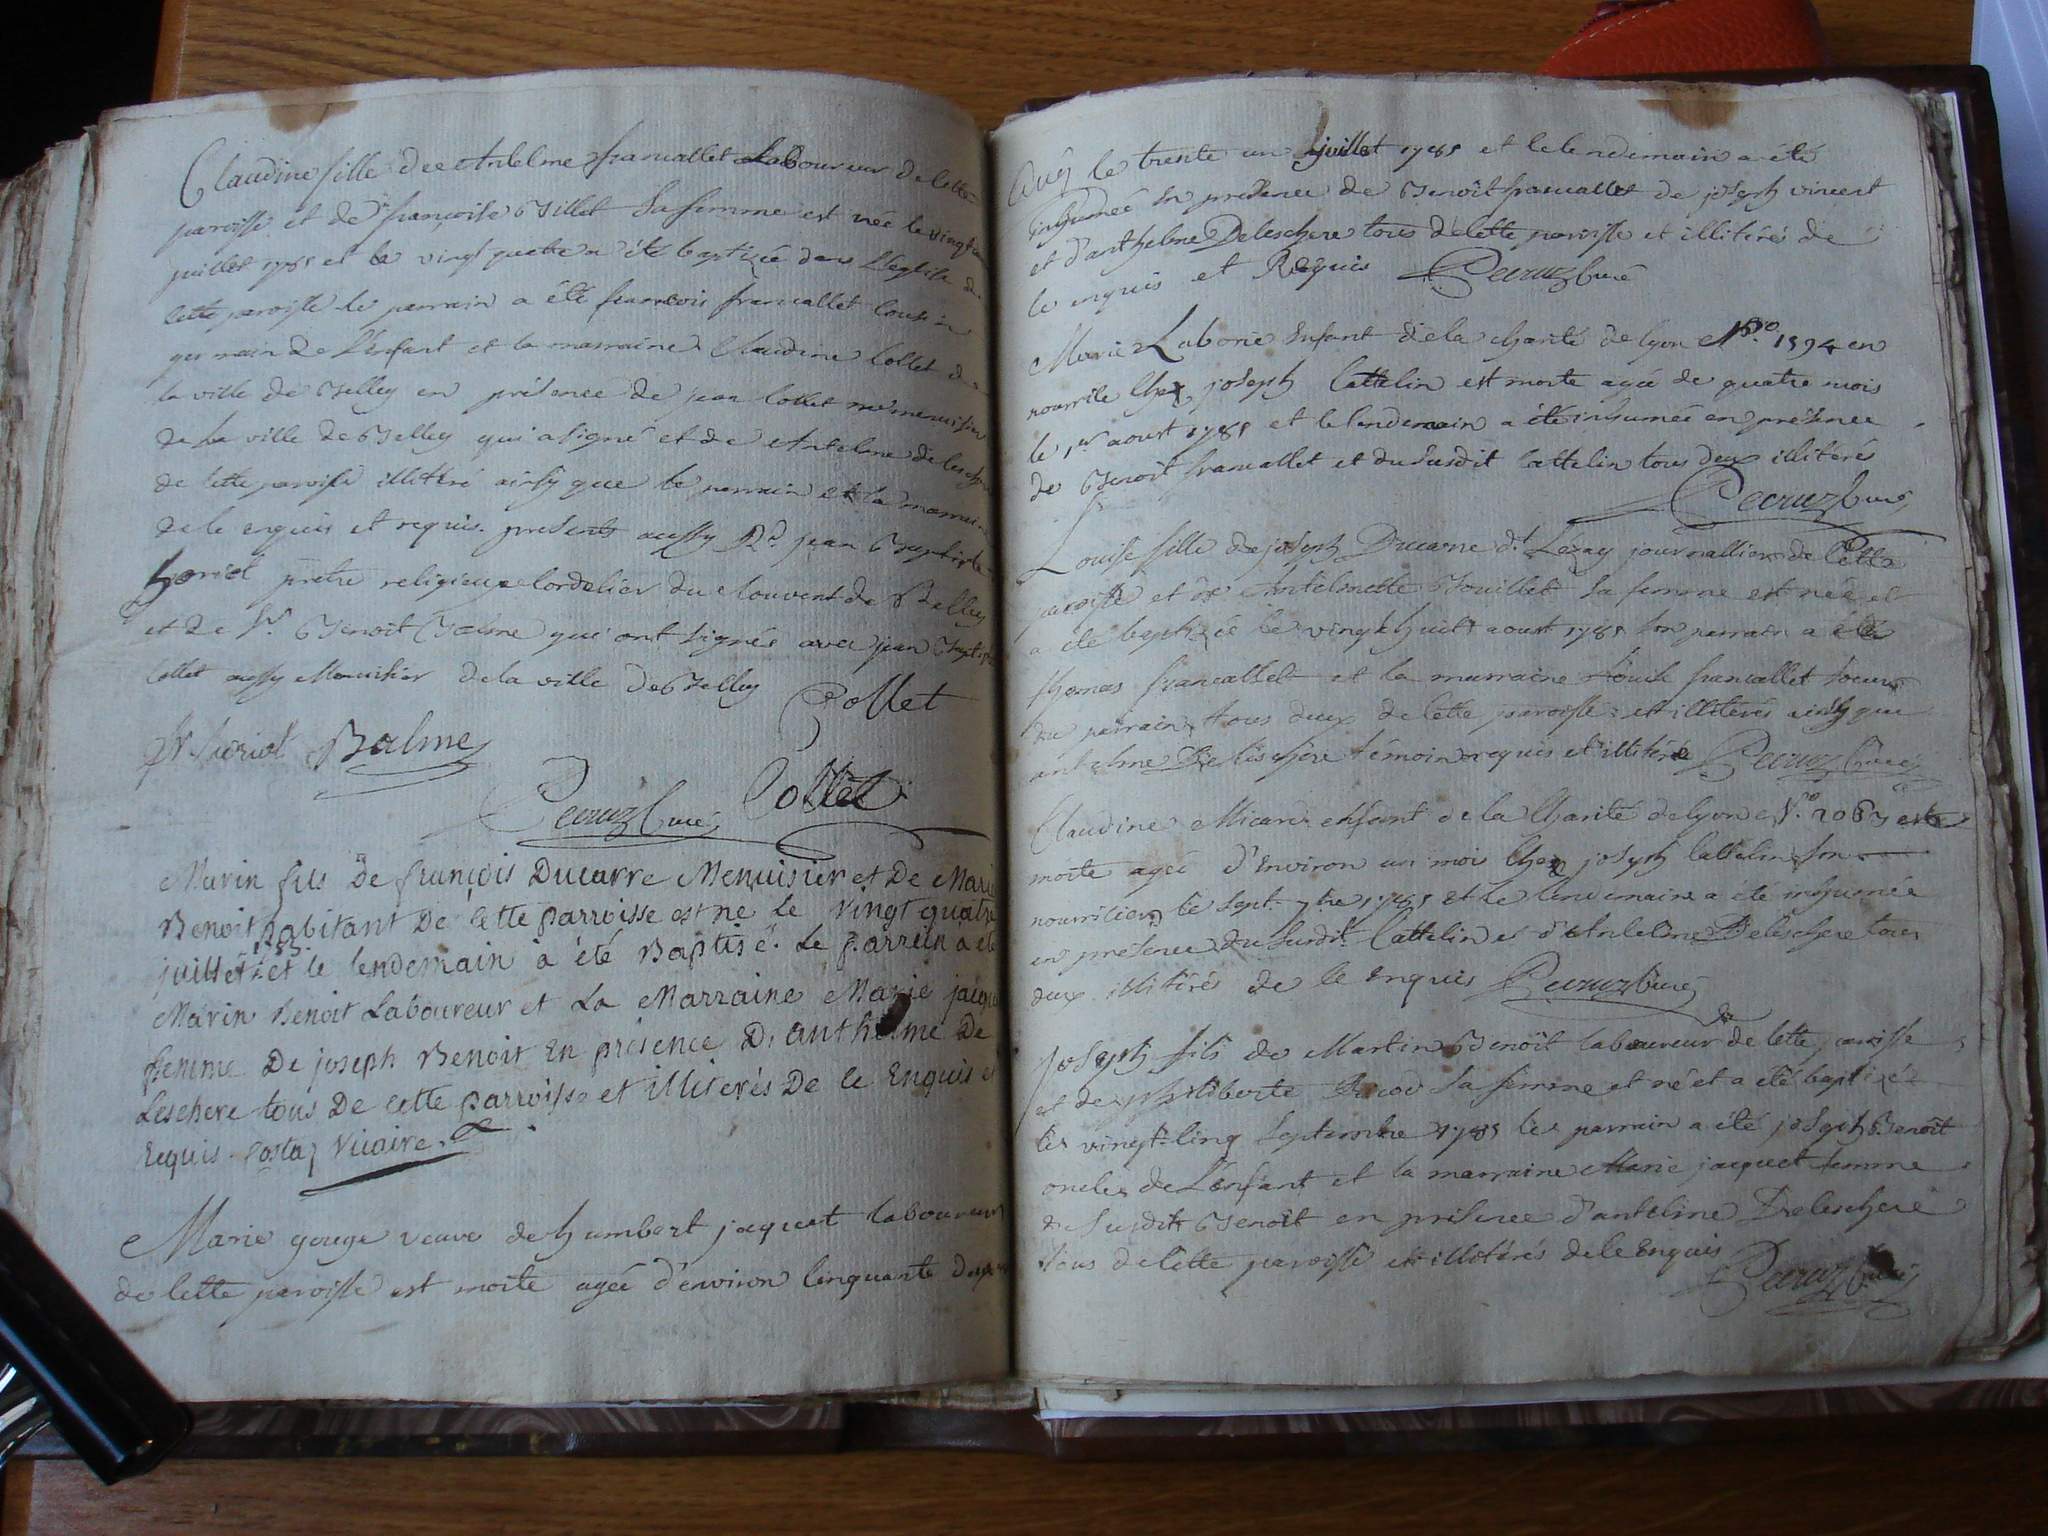 Claudine fille de Antelme francallet Laboureur de cette
paroisse et de françoise Billet sa femme est née le vingt
juillet 1785 et le vingt quatre a été baptizée dans l'eglise de
cette paroisse le parrain a été francois francallet cousin
germain de L'enfant et la marraine Claudine Collet de
la ville de Belley en présence de jean Collet me menuisier
de la ville de Belley qui a signé et de Antelme delescher
de cette paroisse illitéré ainsy que le parrain et la marraine
de ce enquis et requis. presents aussy Rd. jean Baptiste
prêtre religieux Cordelier du Couvent de Belley
et de Sr. Benoit Balme qui ont signés avec jean Baptiste
Collet aussy Menuisier de la ville de Belley Collet
Balme
Pecruz Curé Collet
Marin fils De françois Ducarre Menuisier et De Marie
Benoit habitant De cette parroisse est ne le vingt quatre
juillet et le lendemain à été Baptisé. Le parrein à été
Marin Benoit Laboureur et La Marraine Marie jacque
femme De joseph Benoit En présence D'anthelme De
Leschere tous De cette parroisse et illiterés De ce Enquis et
Requis. Costaz Vicaire.
Marie gouge veuve de humbert jaquet laboureur
de cette paroisse est morte agée d'environ cinquante deux
ans le trente un juillet 1785 et le lendemain a été
inhumée en présence de Benoit francallet de joseph vincent
et d'anthelme Deleschere tous de cette paroisse et illitérés de
ce enquis et Requis Pecruz Curé
Marie Laborie Enfant de la charité de lyon No. 1594 en
nourrice chez joseph Cattelin est morte agée de quatre mois
le 1er aoust 1785 et le lendemain a été inhumée en présence
de Benoit francallet et du susdit Cattelin tous deux illitérés
Pecruz Curé
Louise fille de joseph Ducarre dt. Lézay journallier de cette
paroisse et de Antelmette Bouillet sa femme est née et
a été baptizée le vingt huit aoust 1785 son parrain a été
thomas francallet et la marraine Louise francallet soeur
du parrain, tous deux de cette paroisse et illitérés ainsy que
antelme Deleschere témoin requis et illitéré Pecruz Curé
Claudine Micard enfant de la Charité de lyon No. 2067 est
morte agée d'Environ un mois chez joseph Cattelin son
nourricier le sept 7bre 1785 et le lendemain a été inhumée
en présence du susdit Cattelin et d'Antelme Deleschere tous
deux illitérés de ce enquis Pecruz Curé
joseph fils de Martin Benoit laboureur de cette paroisse
et de philiberte sa femme est né et a été baptizé
le vingt-cinq septembre 1785 le parrain a été joseph Benoit
oncle de L'enfant et la marraine Marie jacquet femme
du susdit Benoit en présence d'antelme Deleschere
tous de cette paroisse et illitérés de ce Enquis
Pecruz Curé